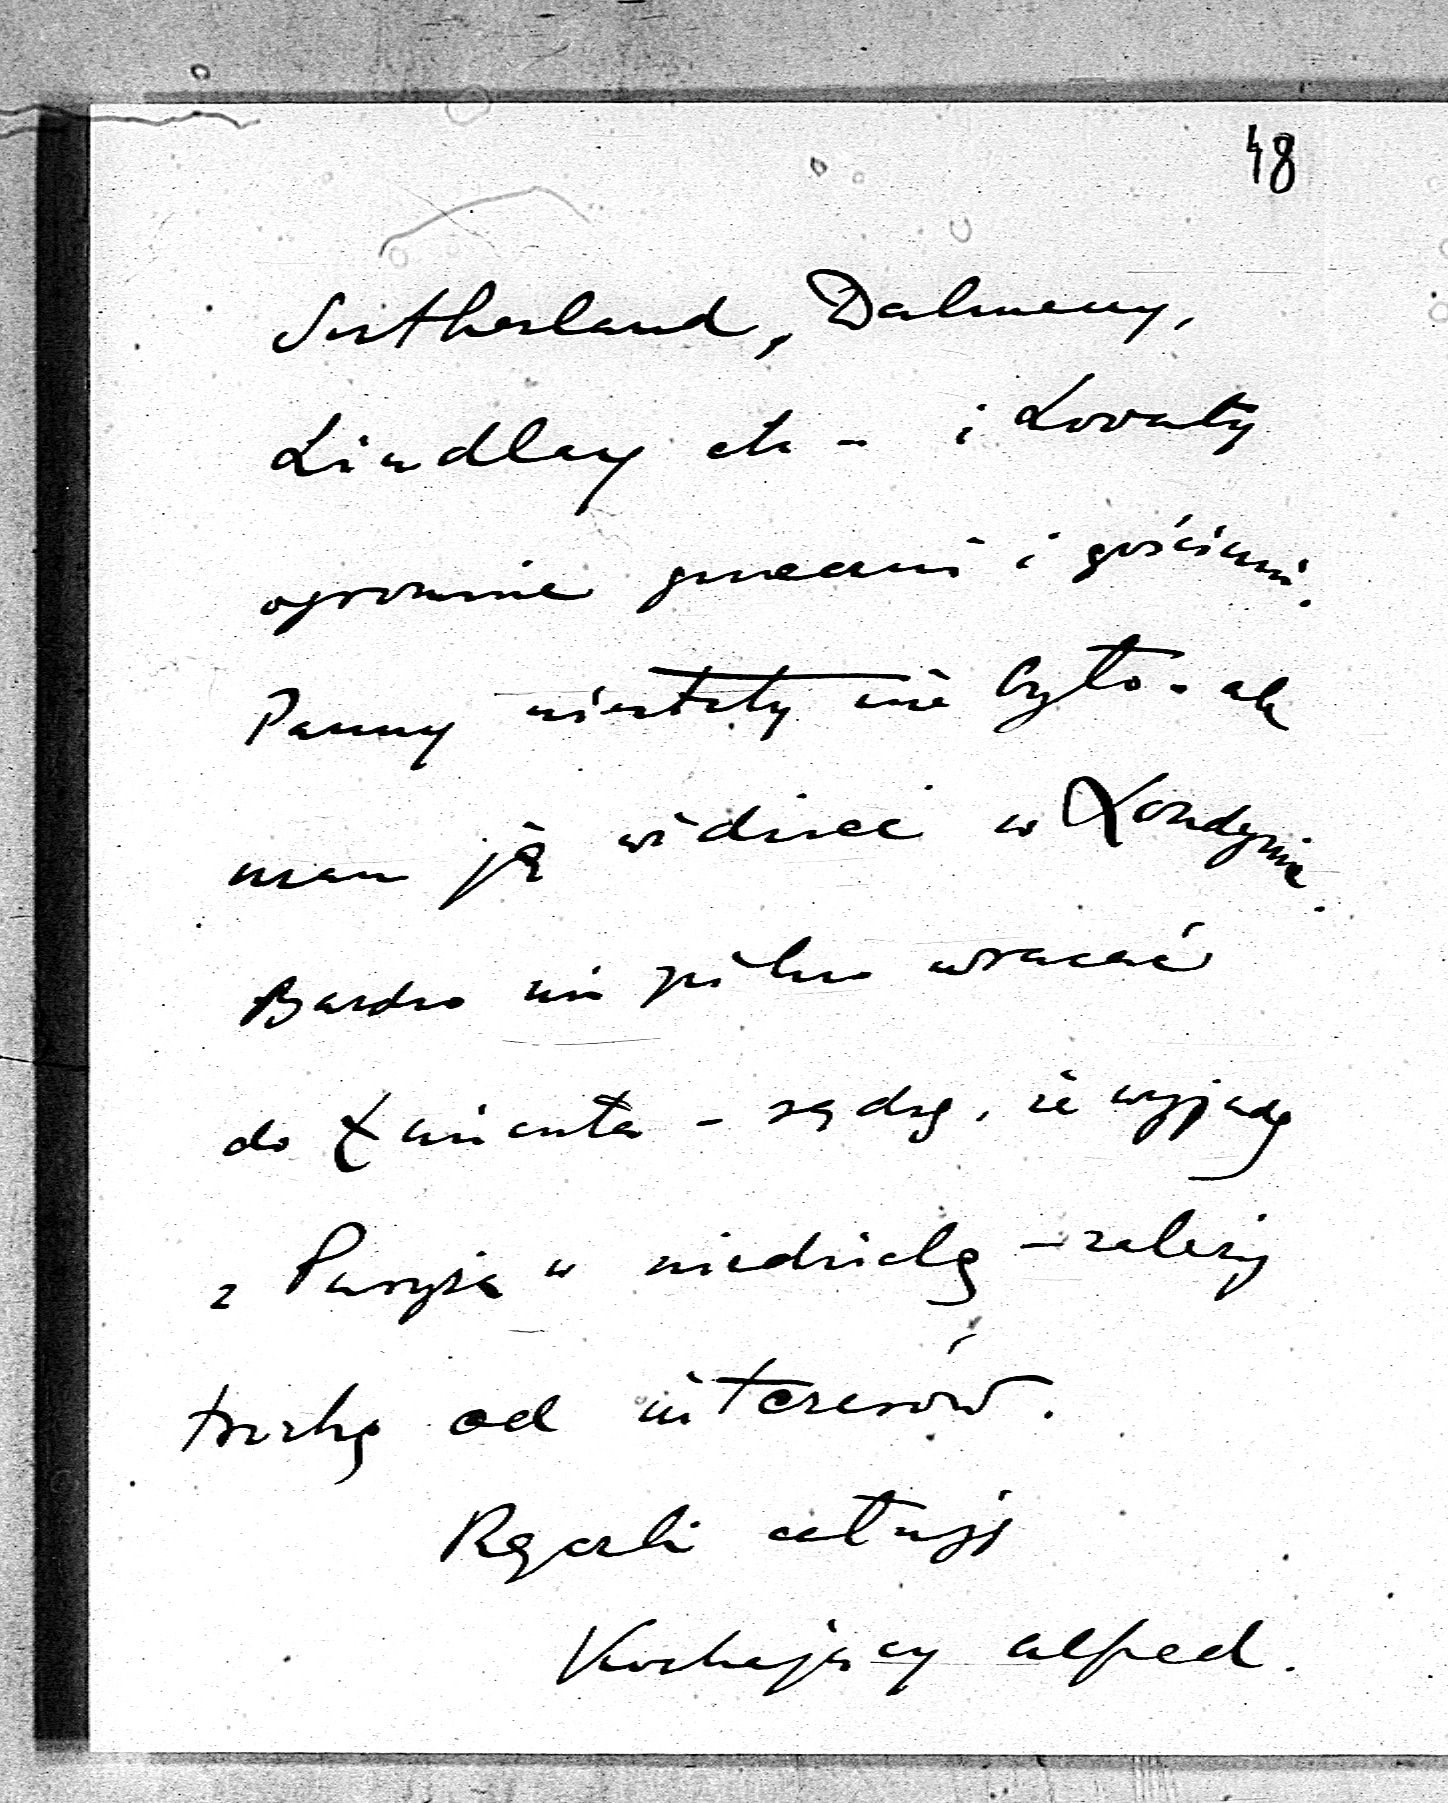 48
Sutherland, Dalmeny,
Lindlay etc - i Lovaty
ogromnie grzeczni i gościnni.
Panny niestety nie było - ale
mam ją widzieć w Londynie.
Bardzo mi pilno wracać
do Łańcuta - sądzę, że wyjadę
z Paryża w niedzielę - zależy
trochę od interesów.
Rączki całuję
Kochający Alfred.